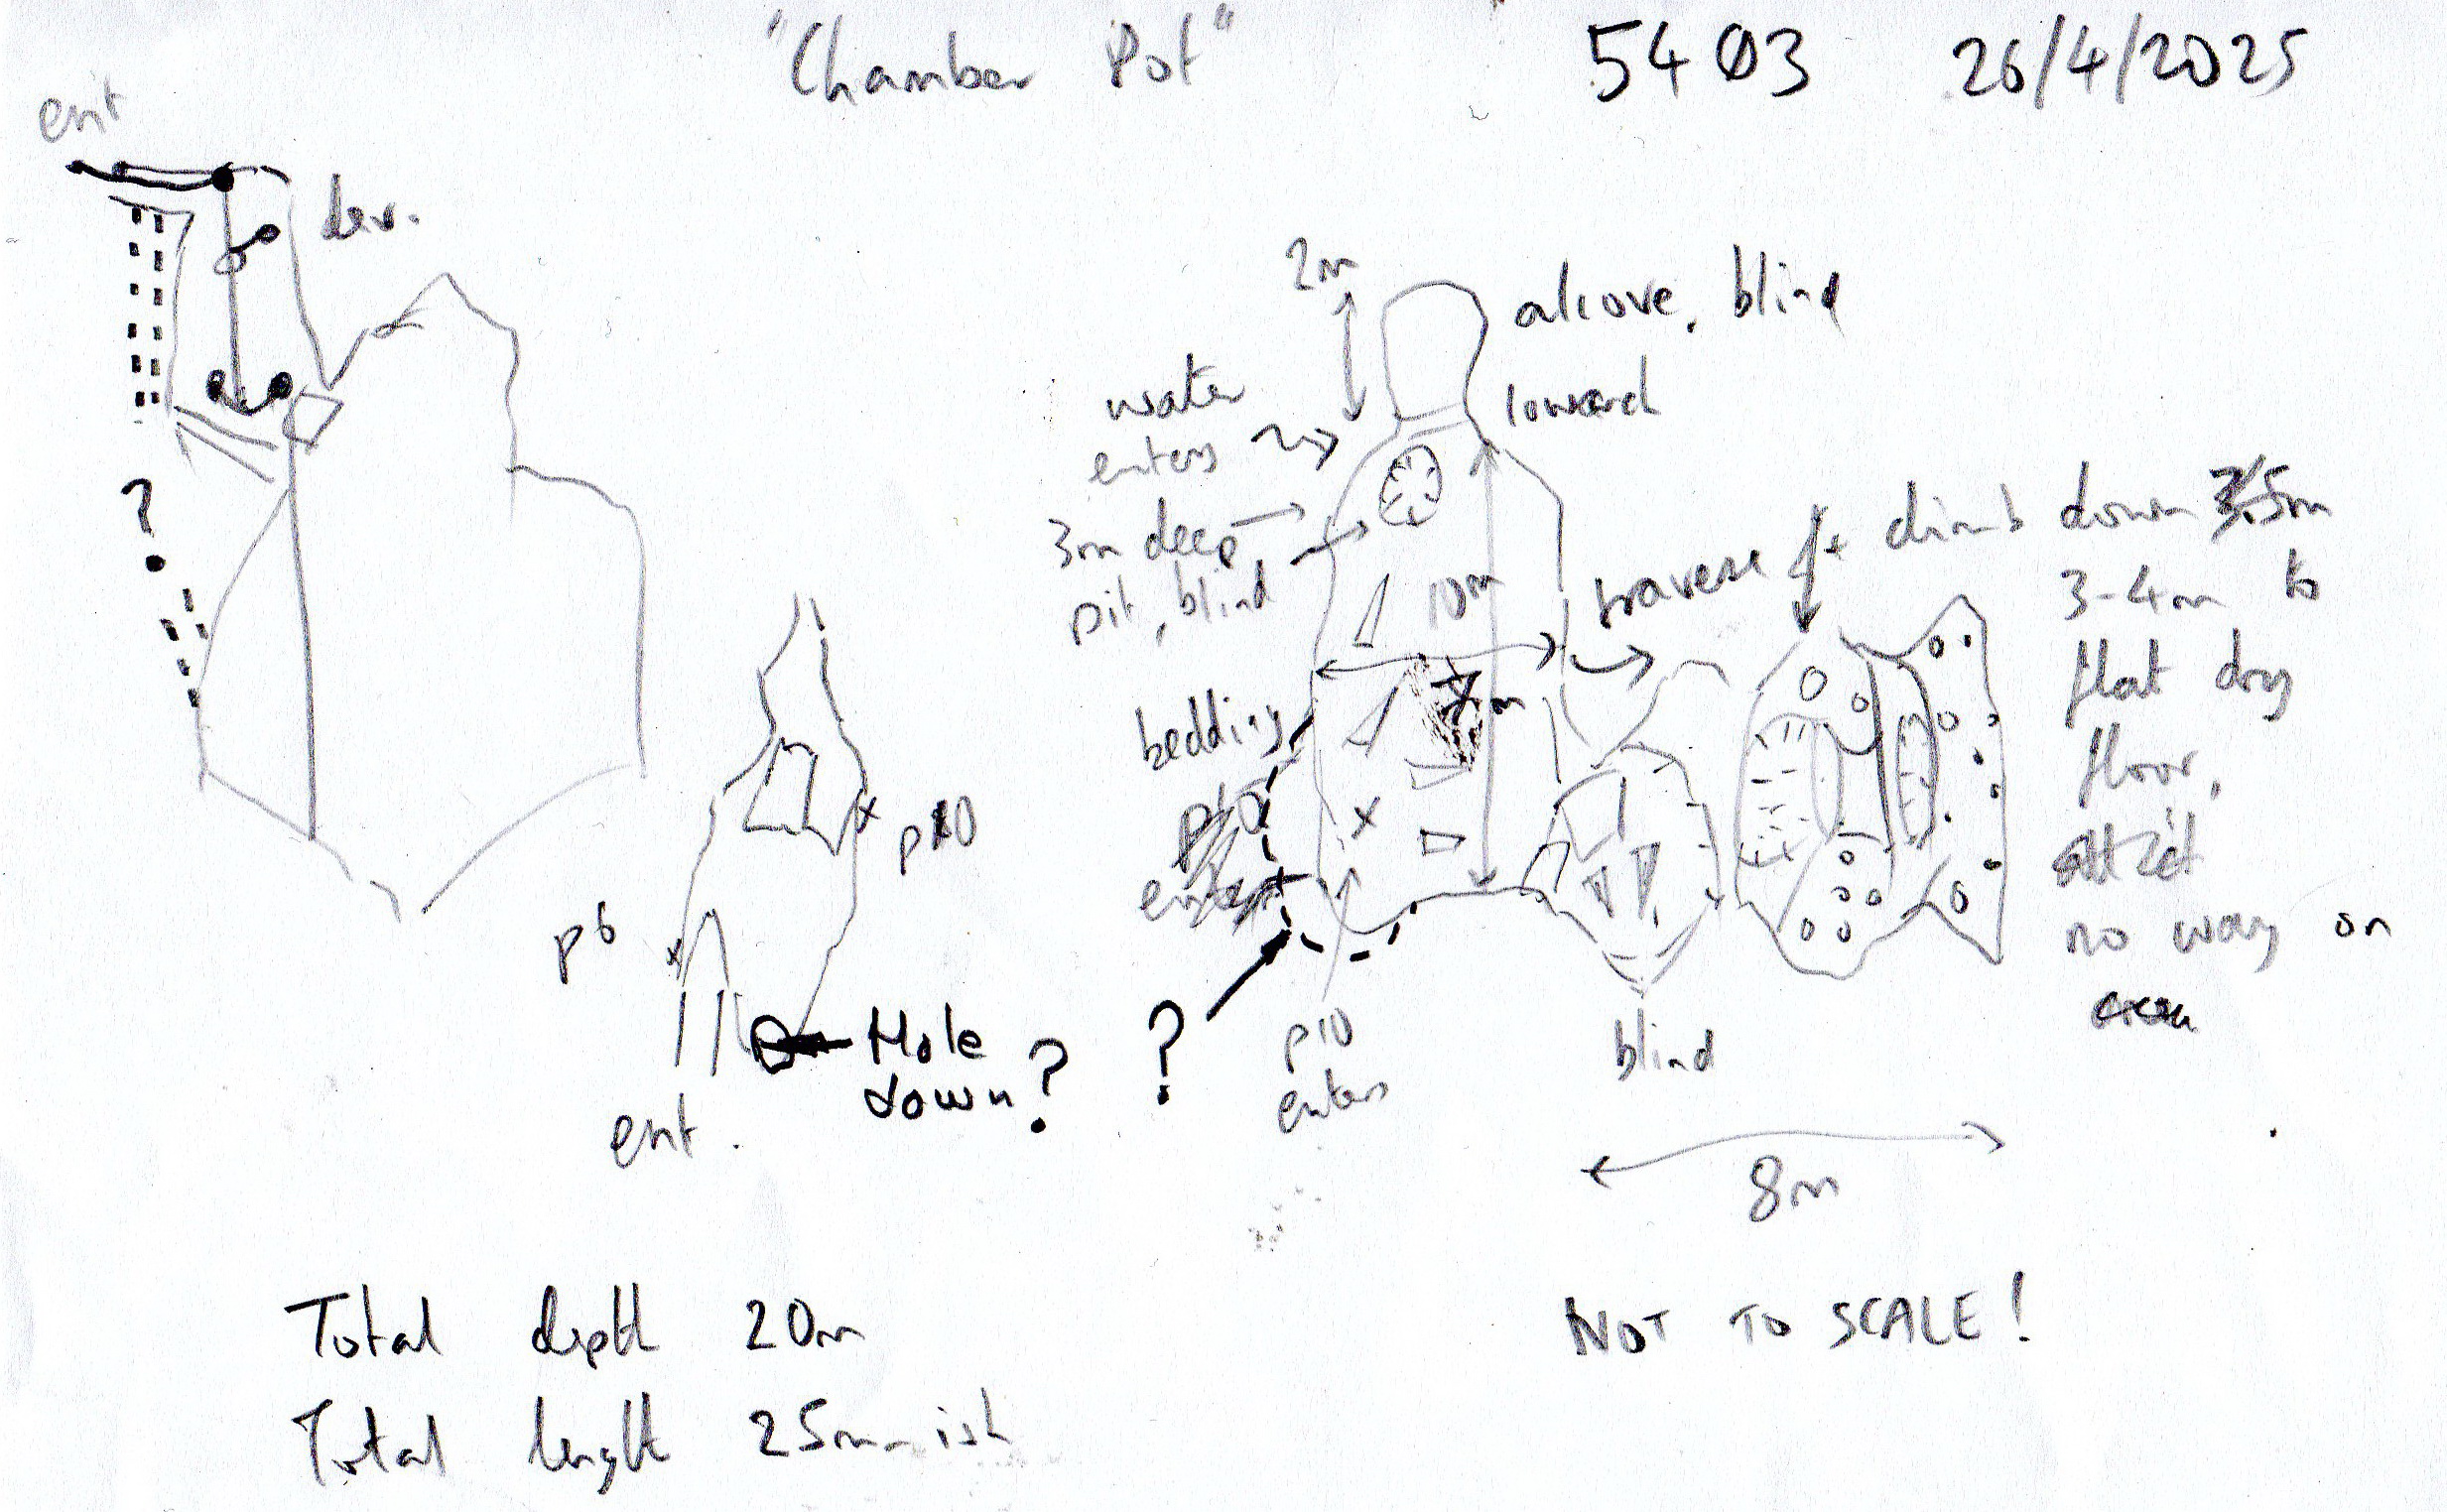 "Chamber Pot" 5403 26/4/2025
ent
dev.
?
2m
alcove, blind
inward
water
enters
3m deep
pit, blind
10m
traverse + climb down 3.5m
3-4m to
flat dry
floor,
no way on
bedding
m
p10
enters
?
blind
8m
p10
p6
Hole
down?
ent.
NOT TO SCALE!
Total depth 20m
Total length 25m-ish